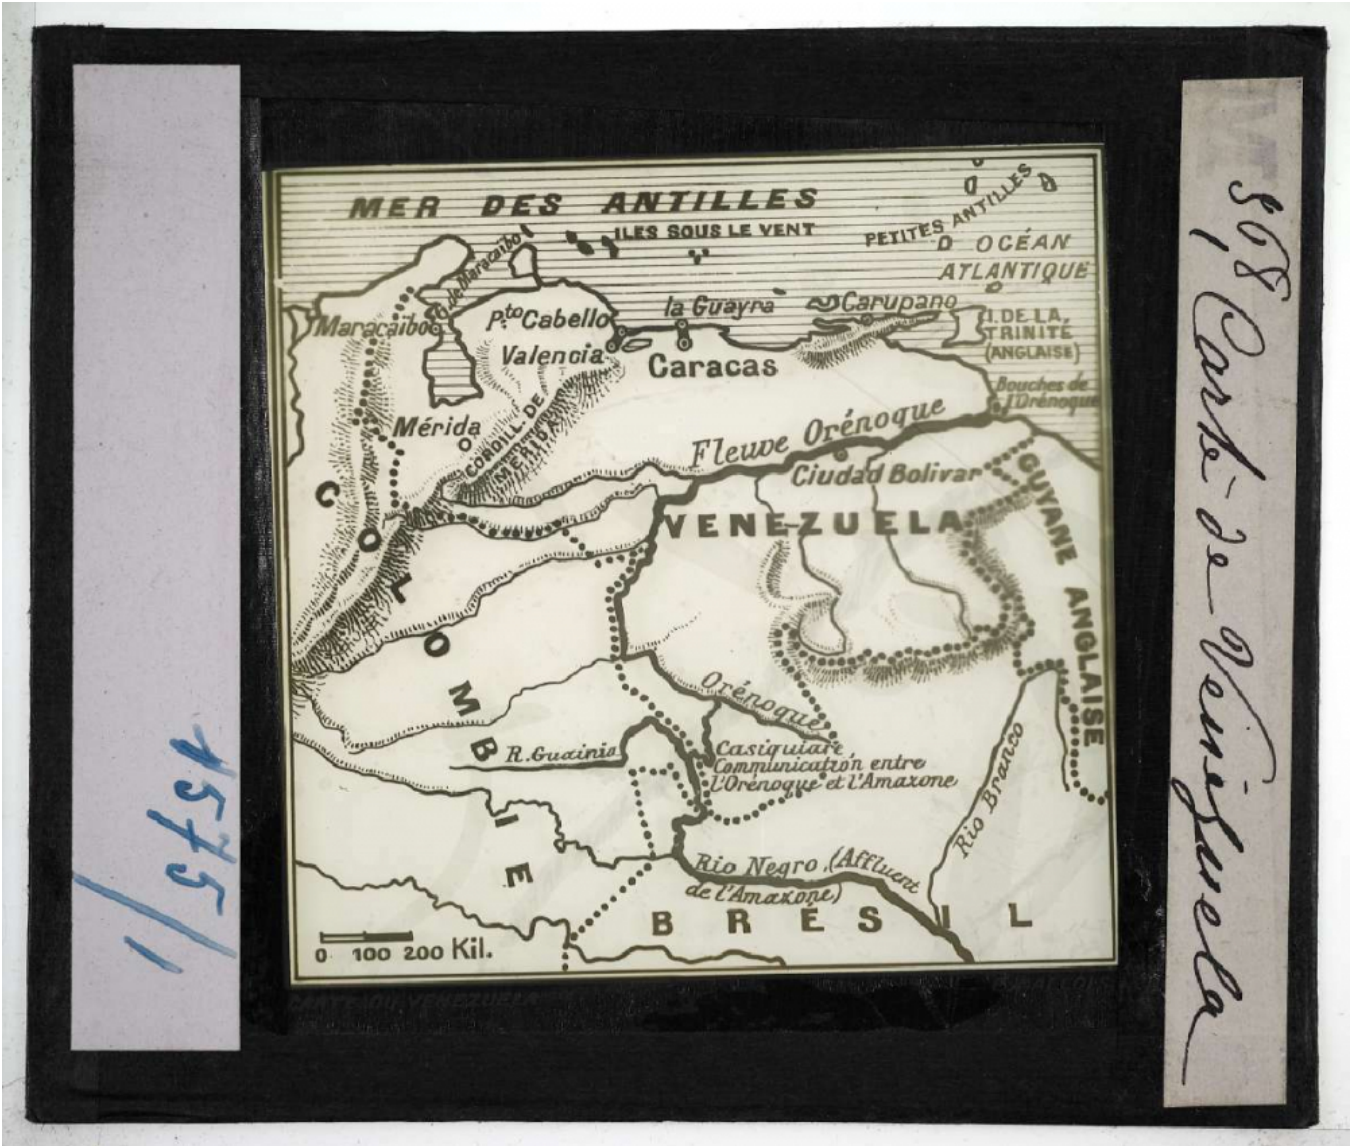 MER DES ANTILLES
ILES SOUS LE VENT
PETITES ANTILLES
OCÉAN
ATLANTIQUE
G. de Maracaibo
Maracaibo
Pto Cabello
la Guayra
Carupano
I. DE LA
TRINITÉ
(ANGLAISE)
Valencia
Caracas
Bouches de
l'Orénoque
Mérida
CORDILL. DE
MERIDA
Fleuve Orénoque
Ciudad Bolivar
VENEZUELA
GUYANE ANGLAISE
COLOMBIE
Orénoque
R. Guainia
Casiquiare
Communication entre
l'Orénoque et l'Amazone
Rio Branco
Rio Negro (Affluent
de l'Amazone)
BRÉSIL
0 100 200 Kil.
CARTE DU VENEZUELA
1575
/1
868, Carte de Vénézuela